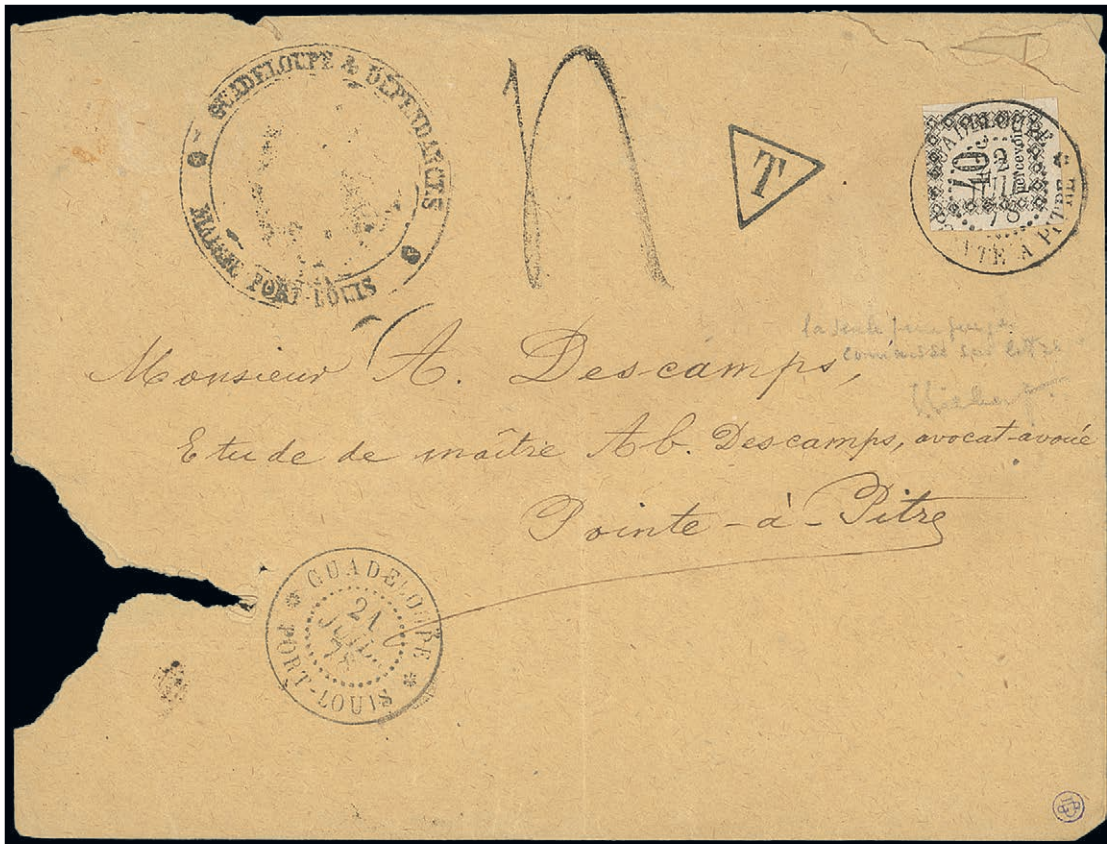 GUADELOUPE & DÉPENDANCES
MAIRIE PORT-LOUIS
n
T
40
percevoir
GUADELOUPE
POINTE A PITRE
78
la seule
connaisse sur lettre
Monsieur A. Descamps,
Etude de maître Ab. Descamps, avocat-avoué
Pointe-à-Pitre
GUADELOUPE
21
JUIL.
78
PORT-LOUIS